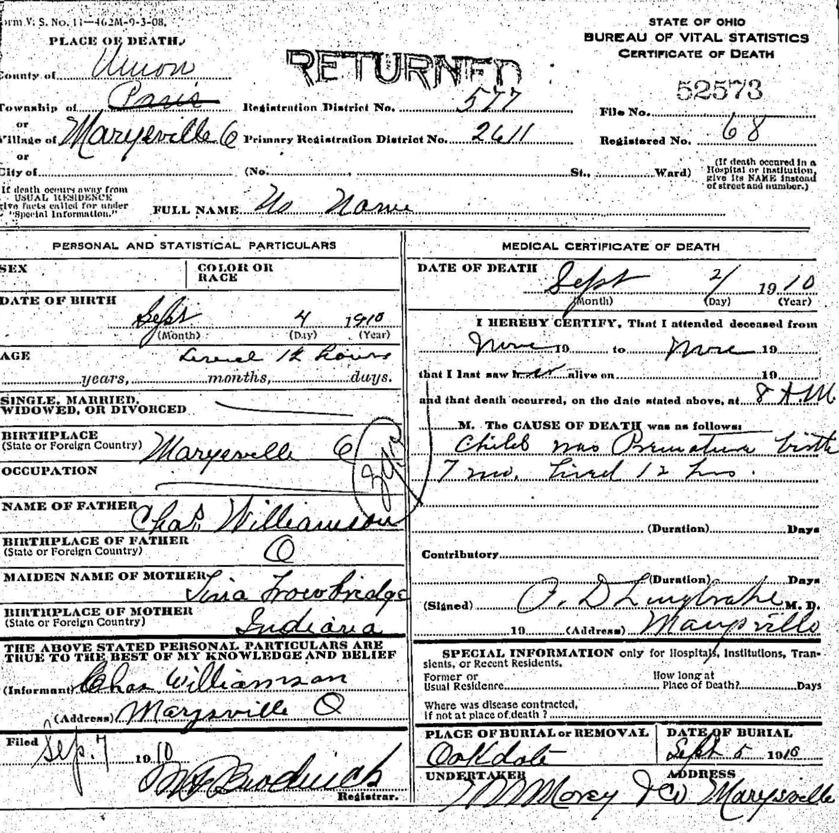 orm V. S. No. 11—462M-9-3-08.
PLACE OF DEATH,
County of Union
Township of Paris
or
Village of Marysville O
or
City of
RETURNED
Registration District No. 577
Primary Registration District No. 2611
(No. St., Ward)
STATE OF OHIO
BUREAU OF VITAL STATISTICS
CERTIFICATE OF DEATH
52573
File No.
Registered No. 68
(If death occured in a
Hospital or Institution,
give its NAME instead
of street and number.)
If death occurs away from
USUAL RESIDENCE
give facts called for under
"Special Information."
FULL NAME No Name
PERSONAL AND STATISTICAL PARTICULARS
SEX
COLOR OR
RACE
DATE OF BIRTH
Sept 4 1910
(Month) (Day) (Year)
AGE Lived 12 hours
years, months, days.
SINGLE, MARRIED,
WIDOWED, OR DIVORCED
BIRTHPLACE
(State or Foreign Country) Marysville O
OCCUPATION
NAME OF FATHER Chas. Williamson
BIRTHPLACE OF FATHER
(State or Foreign Country) O
MAIDEN NAME OF MOTHER Trowbridge
BIRTHPLACE OF MOTHER
(State or Foreign Country) Indiana
THE ABOVE STATED PERSONAL PARTICULARS ARE
TRUE TO THE BEST OF MY KNOWLEDGE AND BELIEF
(Informant) Chas Williamson
(Address) Marysville O
Filed Sep. 7 1910
Brodrick
Registrar.
MEDICAL CERTIFICATE OF DEATH
DATE OF DEATH
Sept 1910
(Month) (Day) (Year)
I HEREBY CERTIFY, That I attended deceased from
19 to 19
that I last saw h alive on 19
and that death occurred, on the date stated above, at 8 AM
M. The CAUSE OF DEATH was as follows:
Child was Premature birth
7 mo. Lived 12 hrs.
(Duration) Days
Contributory
(Duration) Days
(Signed) M. D.
19 (Address) Marysville
SPECIAL INFORMATION only for Hospitals, Institutions, Tran-
sients, or Recent Residents.
Former or
Usual Residence
How long at
Place of Death? Days
Where was disease contracted,
if not at place of death?
PLACE OF BURIAL or REMOVAL
Oakdale
DATE OF BURIAL
Sept 5 1910
UNDERTAKER
Morey & Co
ADDRESS
Marysville